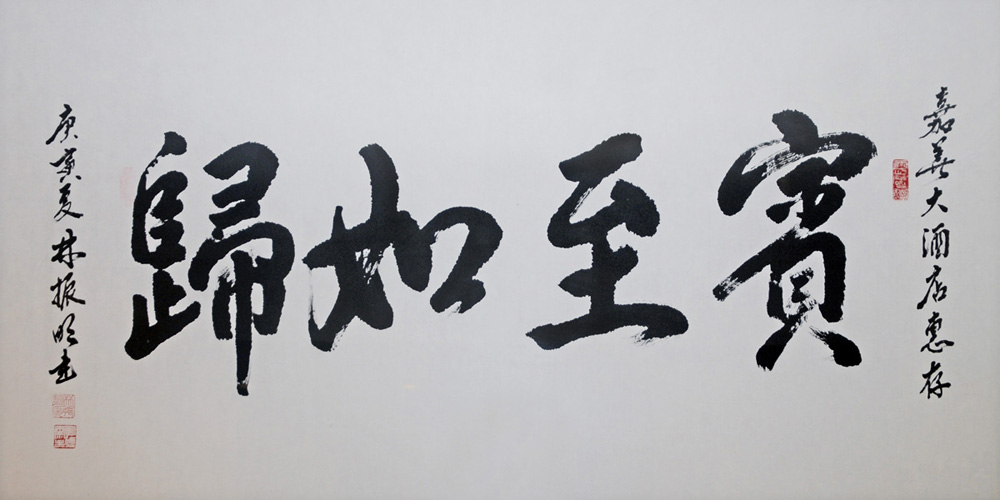 嘉善大酒店惠存
賓至如歸
庚寅夏林振明書